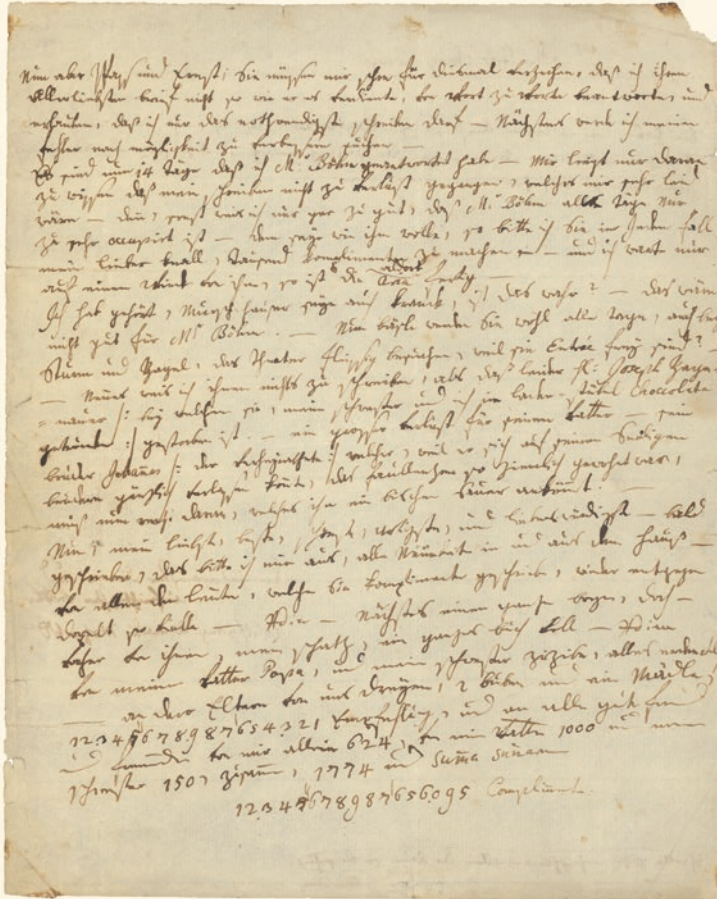 Nun aber Spass und Ernst; Sie müssen mir schon für diesmal verzeihen, daß ich ihren
Allerliebsten brief nicht so wie er es verdiente, von Wort zu Worte beantworte, und
erlauben, daß ich nur das nothwendigste schreiben darf — Nächstens werde ich meinen
fehler nach möglichkeit zu verbessern suchen —
Es sind nun 14 Täge daß ich Mr Böhm geantwortet habe — Mir liegt nur daran
zu wissen daß mein schreiben nicht zu verlust gegangen, welches mir sehr leid
wäre — denn, sonst weis ich nur gar zu gut, daß Mr Böhm alle Täge nur
zu sehr occupirt ist — dem seye wie ihm wolle, so bitte ich Sie in Jedem fall
mein lieber knall, tausend Complimenten zu machen — und ich warte nur
auf einen Wink von ihm, so ist die aria fertig —
Ich hab gehört, Münschhauser seye auch krank, ist das wahr? — das wäre
nicht gut für Mr Böhm. — Nun bäsle werden Sie wohl alle tage, auch bey
Sturm und Hagel, das Theater fleissig besuchen, weil sie Entrée frey sind? —
— Neues weis ich ihnen nichts zu schreiben, als daß leider H: Joseph Hage=
=nauer /: bey welchen sie, mein schwester und ich im lader-stübel Choccolata
getrunken :/ gestorben ist. — ein grosser verlust für seinen vatter — sein
bruder Johannes /: der verheyrathete :/ welcher, weil er sich auf seinen Seeligen
brudern gänzlich verlassen konnte, das faullenzen so ziemlich gewohnt war,
muß nun daran, welches ihm ein bischen sauer ankömmt. —
Nun, mein liebste, beste, schönste, artigste, und liebenswürdigste — bald
geschrieben, das bitte ich mir aus, alle Neuheite in und aus dem hause —
von allen den leuten, welche Sie Complimente geschrieben, wieder entgegen
dopelt so viele — Adieu — Nächstens einen ganzen bogen, doch —
vorher von ihnen, mein schatz, ein ganzes buch voll — Adieu
von meinem vatter Papa, und mein schwester zizibe, alles erdenkliche
— an dero Eltern von uns dreyen, 2 buben und ein Mädle,
12345678987654321 Empfehlung, und an alle gute freunde
von mir allein 624, von mein vatter 1000 und mein
schwester 150, zusamm, 1774 und Suma Sumarum
12345678987656095 Complimente.